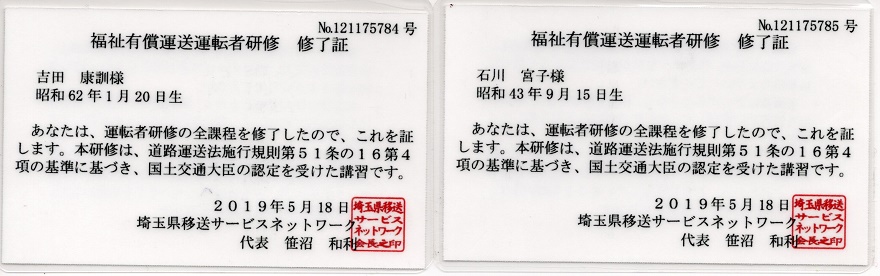 No.121175784 号
福祉有償運送運転者研修　修了証
吉田　康訓様
昭和 62 年 1 月 20 日生
あなたは、運転者研修の全課程を修了したので、これを証
します。本研修は、道路運送法施行規則第５１条の１６第４
項の基準に基づき、国土交通大臣の認定を受けた講習です。
２０１９年５月 18 日
埼玉県移送サービスネットワーク
代表　笹沼　和利
埼玉県移送
サービス
ネットワーク
会長之印
No.121175785 号
福祉有償運送運転者研修　修了証
石川　宮子様
昭和 43 年 9 月 15 日生
あなたは、運転者研修の全課程を修了したので、これを証
します。本研修は、道路運送法施行規則第５１条の１６第４
項の基準に基づき、国土交通大臣の認定を受けた講習です。
２０１９年５月 18 日
埼玉県移送サービスネットワーク
代表　笹沼　和利
埼玉県移送
サービス
ネットワーク
会長之印